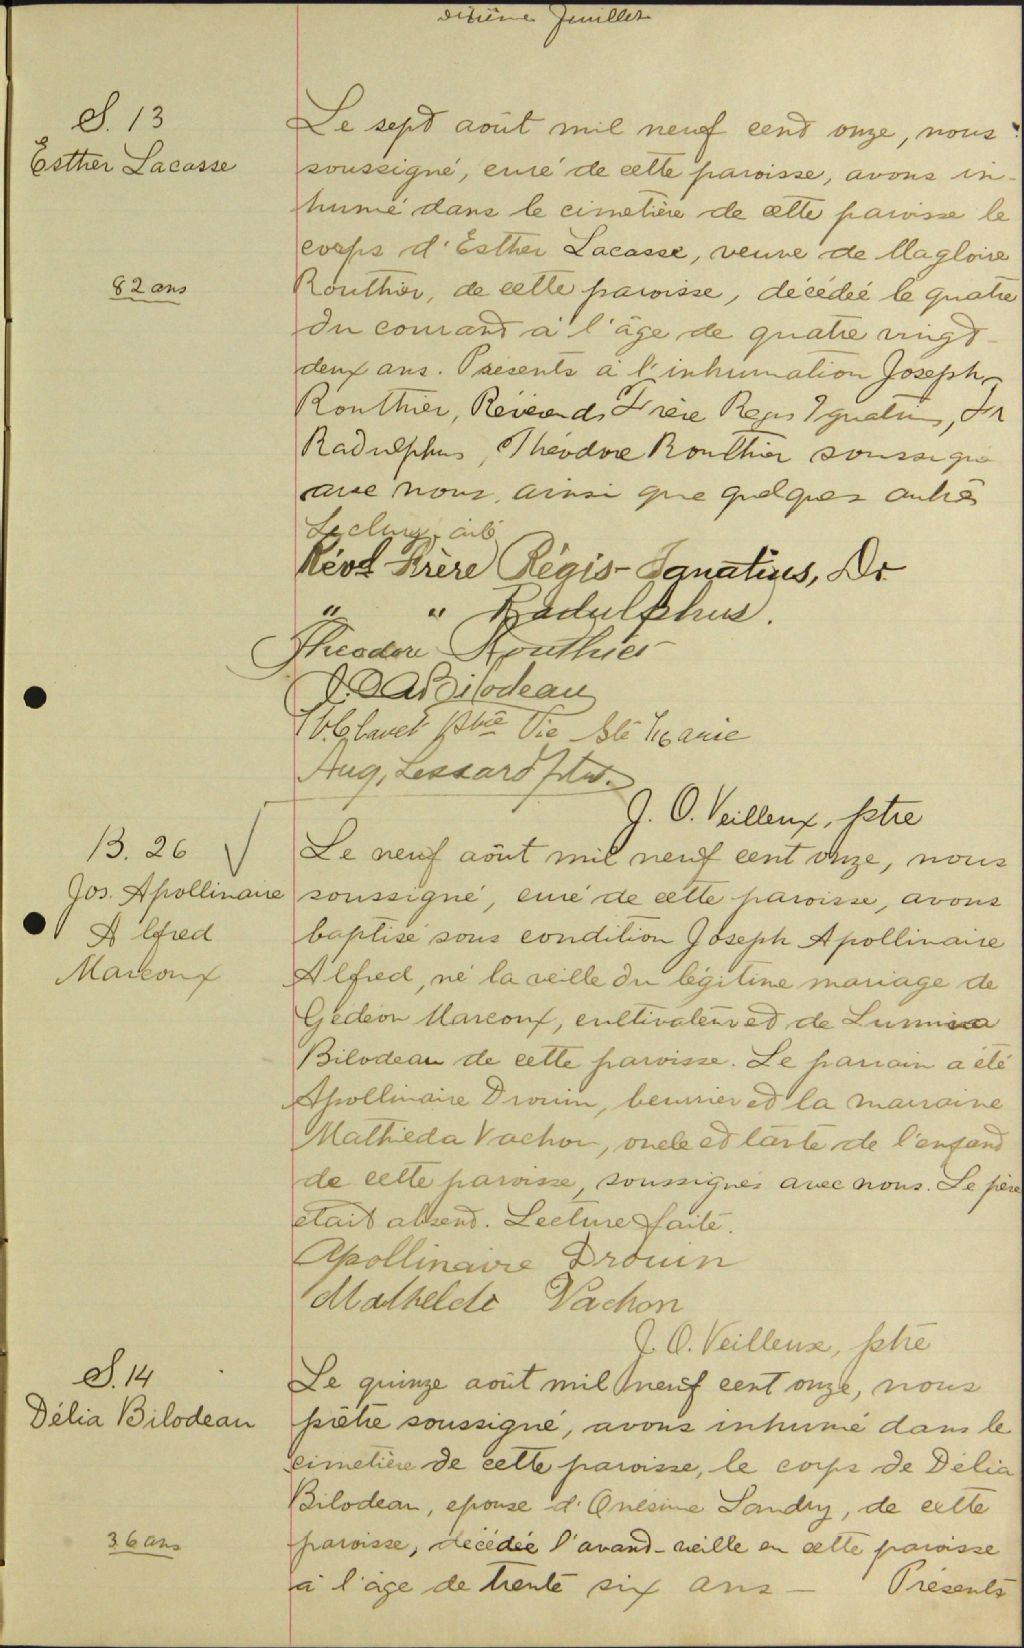 dixième Juillet
S. 13
Esther Lacasse
82 ans
Le sept août mil neuf cent onze, nous
soussigné, curé de cette paroisse, avons in-
humé dans le cimetière de cette paroisse le
corps d'Esther Lacasse, veuve de Magloire
Routhier, de cette paroisse, décédée le quatre
du courant à l'âge de quatre vingt-
deux ans. Présents à l'inhumation Joseph
Routhier, Révérends Frère Regis Ignatius, Fr
Radulphus, Théodore Routhier soussigné
avec nous, ainsi que quelques autres
Révd Frère Régis-Ignatius, Dr
" " Radulphus.
Théodore Routhier
J.D.A Bilodeau
ptre Vic Ste Marie
Aug, Lessard ptre.
J. O. Veilleux, ptre
B. 26
Jos. Apollinaire
Alfred
Marcoux
Le neuf août mil neuf cent onze, nous
soussigné, curé de cette paroisse, avons
baptisé sous condition Joseph Apollinaire
Alfred, né la veille du légitime mariage de
Gédéon Marcoux, cultivateur et de Lumina
Bilodeau de cette paroisse. Le parrain a été
Apollinaire Drouin, beurrier et la marraine
Mathieda Vachon, oncle et tante de l'enfant
de cette paroisse, soussignés avec nous. Le père
était absent. Lecture faite.
Apollinaire Drouin
Mathelde Vachon
J. O. Veilleux, ptre
S. 14
Délia Bilodeau
36 ans
Le quinze août mil neuf cent onze, nous
prêtre soussigné, avons inhumé dans le
cimetière de cette paroisse, le corps de Délia
Bilodeau, epouse d'Onésime Landry, de cette
paroisse, décédée l'avant-veille en cette paroisse
à l'âge de trente six ans — Présents